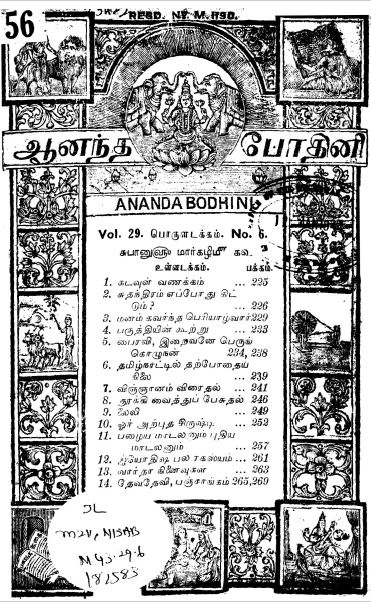 56
REGD. No. M. 1190.
ஆனந்த போதினி
ANANDA BODHINI
Vol. 29. பொருளடக்கம். No. 6.
சுபானுஸ்ரீ மார்கழிமீ கஉ
உள்ளடக்கம். பக்கம்.
1. கடவுள் வணக்கம் ... 225
2. சுதந்திரம் எப்போது கிட்
டும்? ... 226
3. மனம் கவர்ந்த பெரியாழ்வார் 229
4. பருத்தியின் கூற்று ... 233
5. பைரவி, இறைவனே பெருங்
கொழுநன் 234, 238
6. தமிழ்நாட்டில் தற்போதைய
நிலை ... 239
7. விஞ்ஞானம் விரைதல் ... 241
8. தூக்கி வைத்துப் பேசுதல் 246
9. லைலி ... 249
10. ஓர் அற்புத சிருஷ்டி ... 252
11. பழைய மாடலனும் புதிய
மாடலனும் ... 257
12. ஜ்யோதிஷ பல ரகஸ்யம் ... 261
13. வார்தா கினேவுகள ... 263
14. தேவதேவி, பஞ்சாங்கம் 265, 269
JL
m211, N15AB
N43.29.6
182583